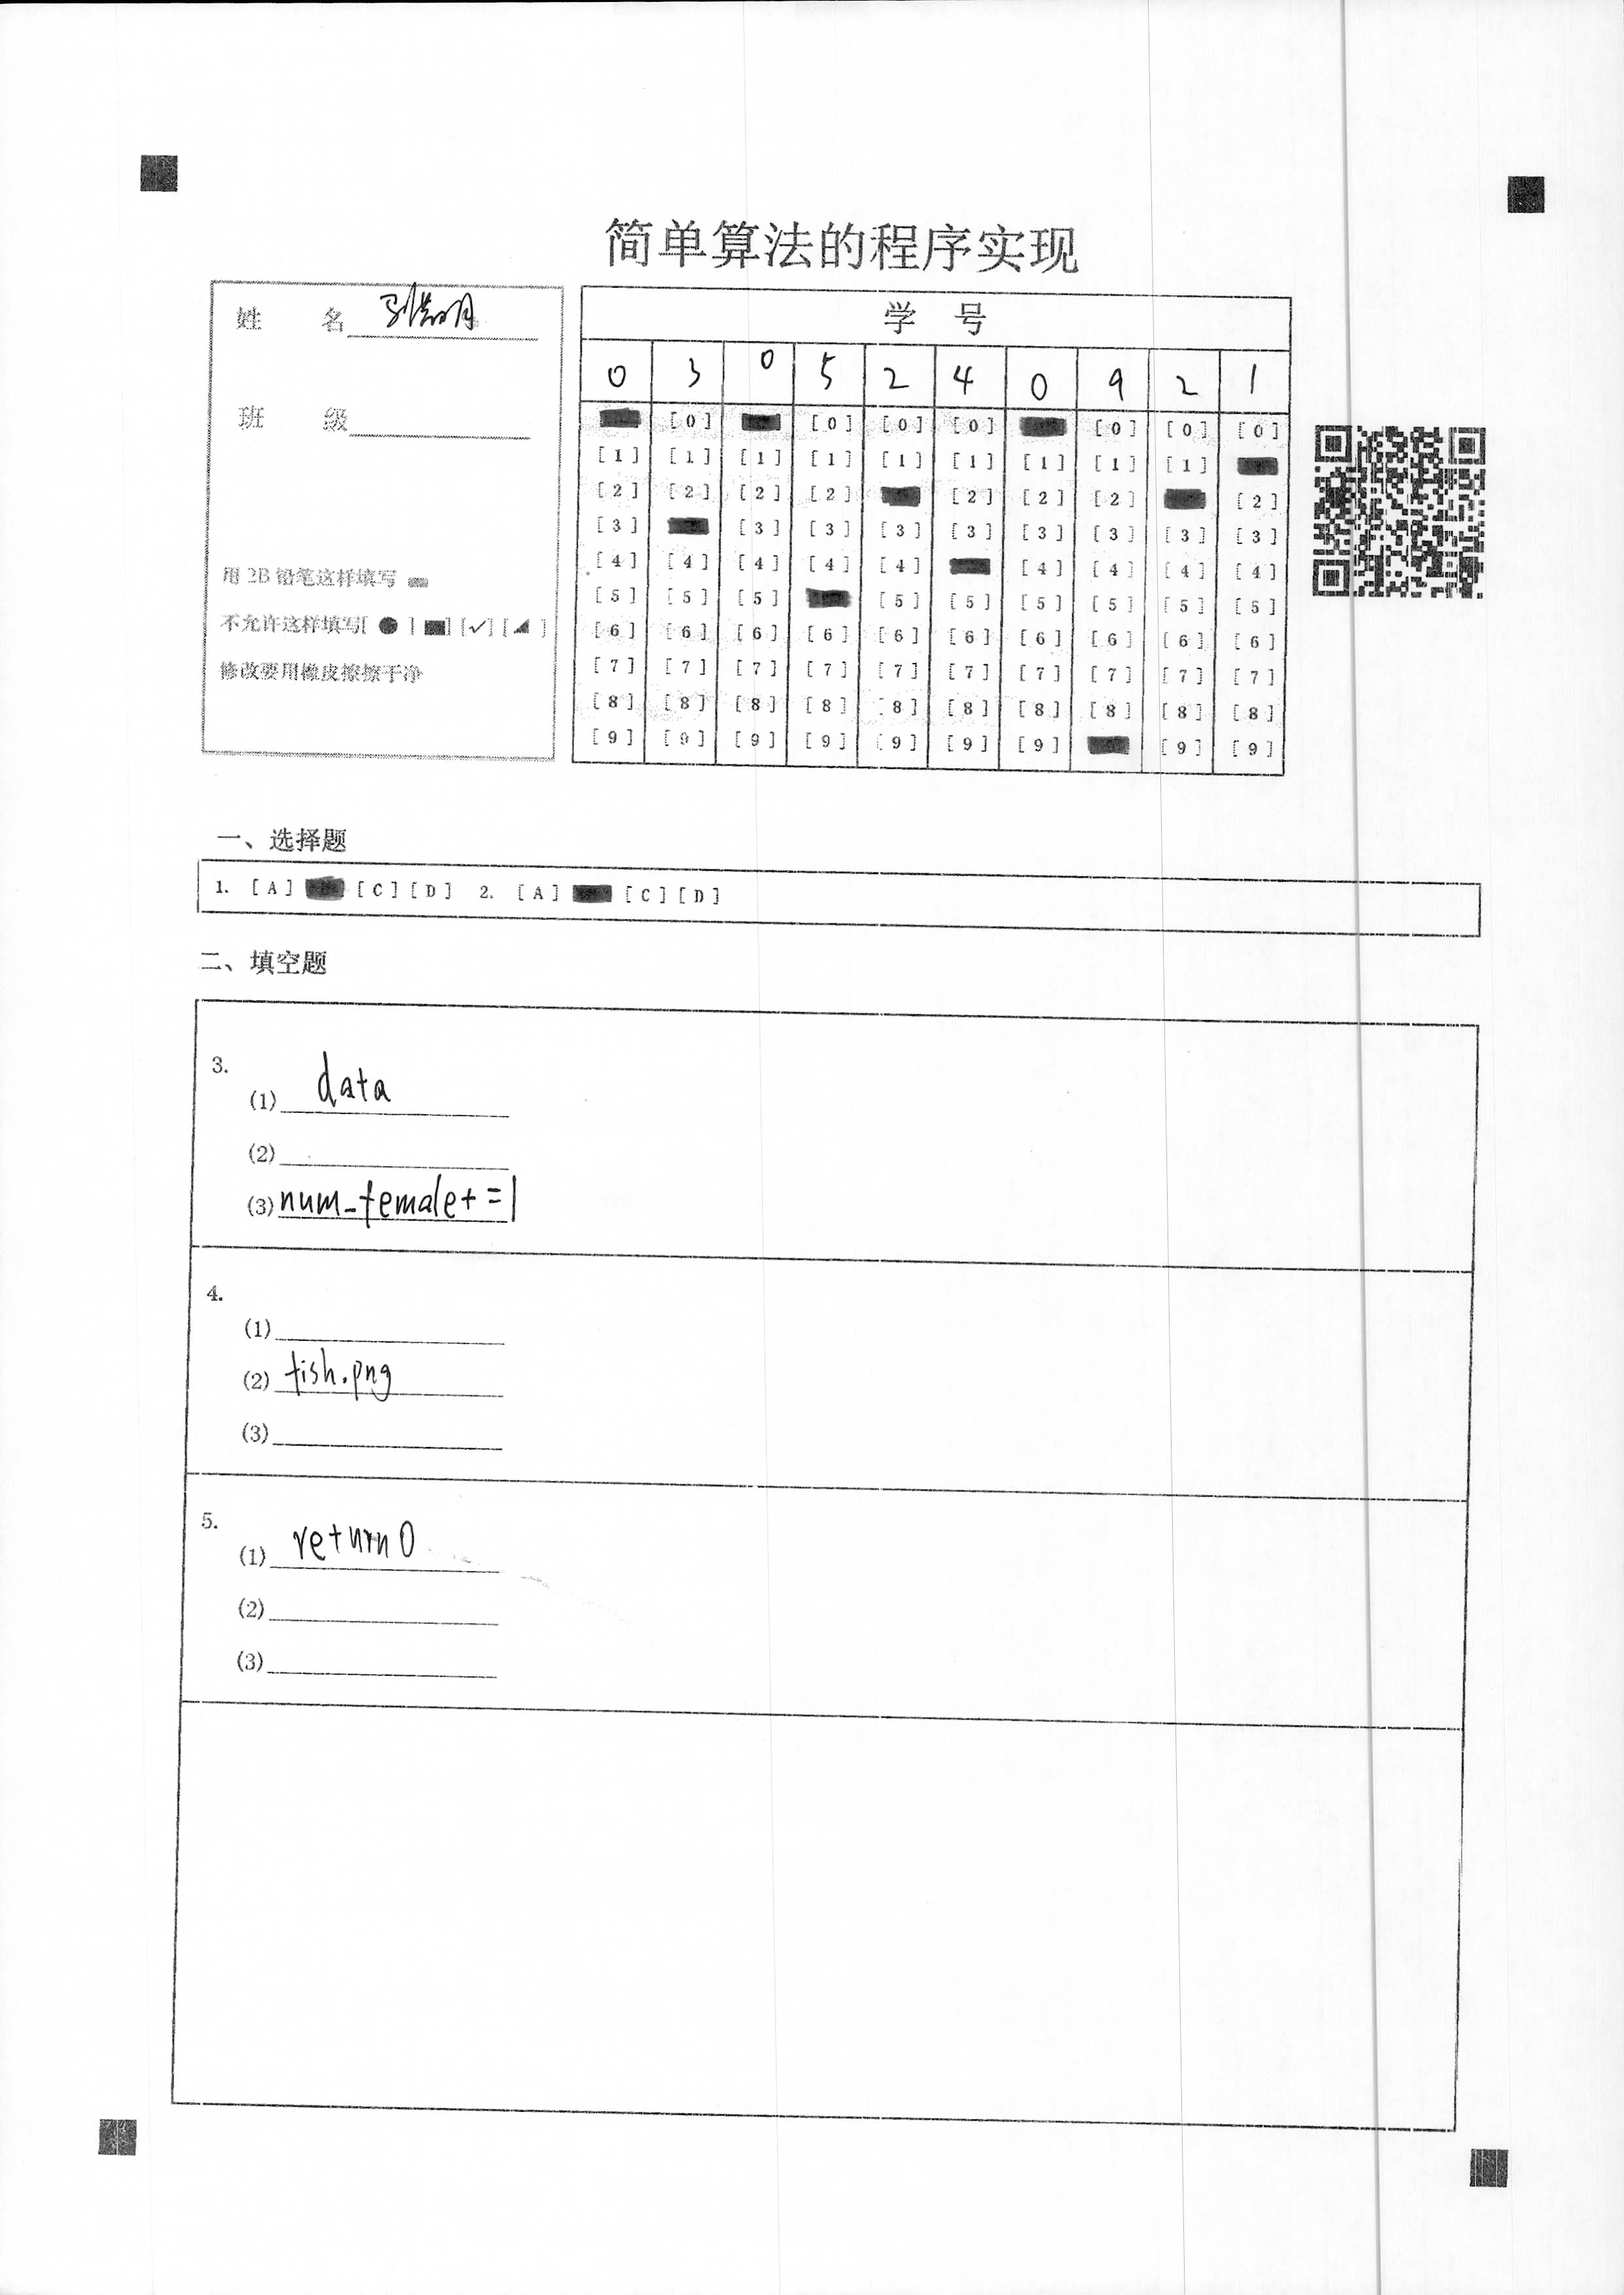 简单算法的程序实现
姓 名
班 级
用 2B 铅笔这样填写
不允许这样填写[ ● ] [■] [✓] [◢ ]
修改要用橡皮擦擦干净
学 号
0 3 0 5 2 4 0 9 2 1
[0] [0] [0] [0] [0] [0] [0]
[1] [1] [1] [1] [1] [1] [1] [1] [1]
[2] [2] [2] [2] [2] [2] [2] [2]
[3] [3] [3] [3] [3] [3] [3] [3] [3]
[4] [4] [4] [4] [4] [4] [4] [4] [4]
[5] [5] [5] [5] [5] [5] [5] [5] [5]
[6] [6] [6] [6] [6] [6] [6] [6] [6] [6]
[7] [7] [7] [7] [7] [7] [7] [7] [7] [7]
[8] [8] [8] [8] [8] [8] [8] [8] [8] [8]
[9] [9] [9] [9] [9] [9] [9] [9] [9]
一、选择题
1. [A] [C] [D] 2. [A] [C] [D]
二、填空题
3.
(1) data
(2)
(3) num_female+=1
4.
(1)
(2) fish.png
(3)
5.
(1) return 0
(2)
(3)